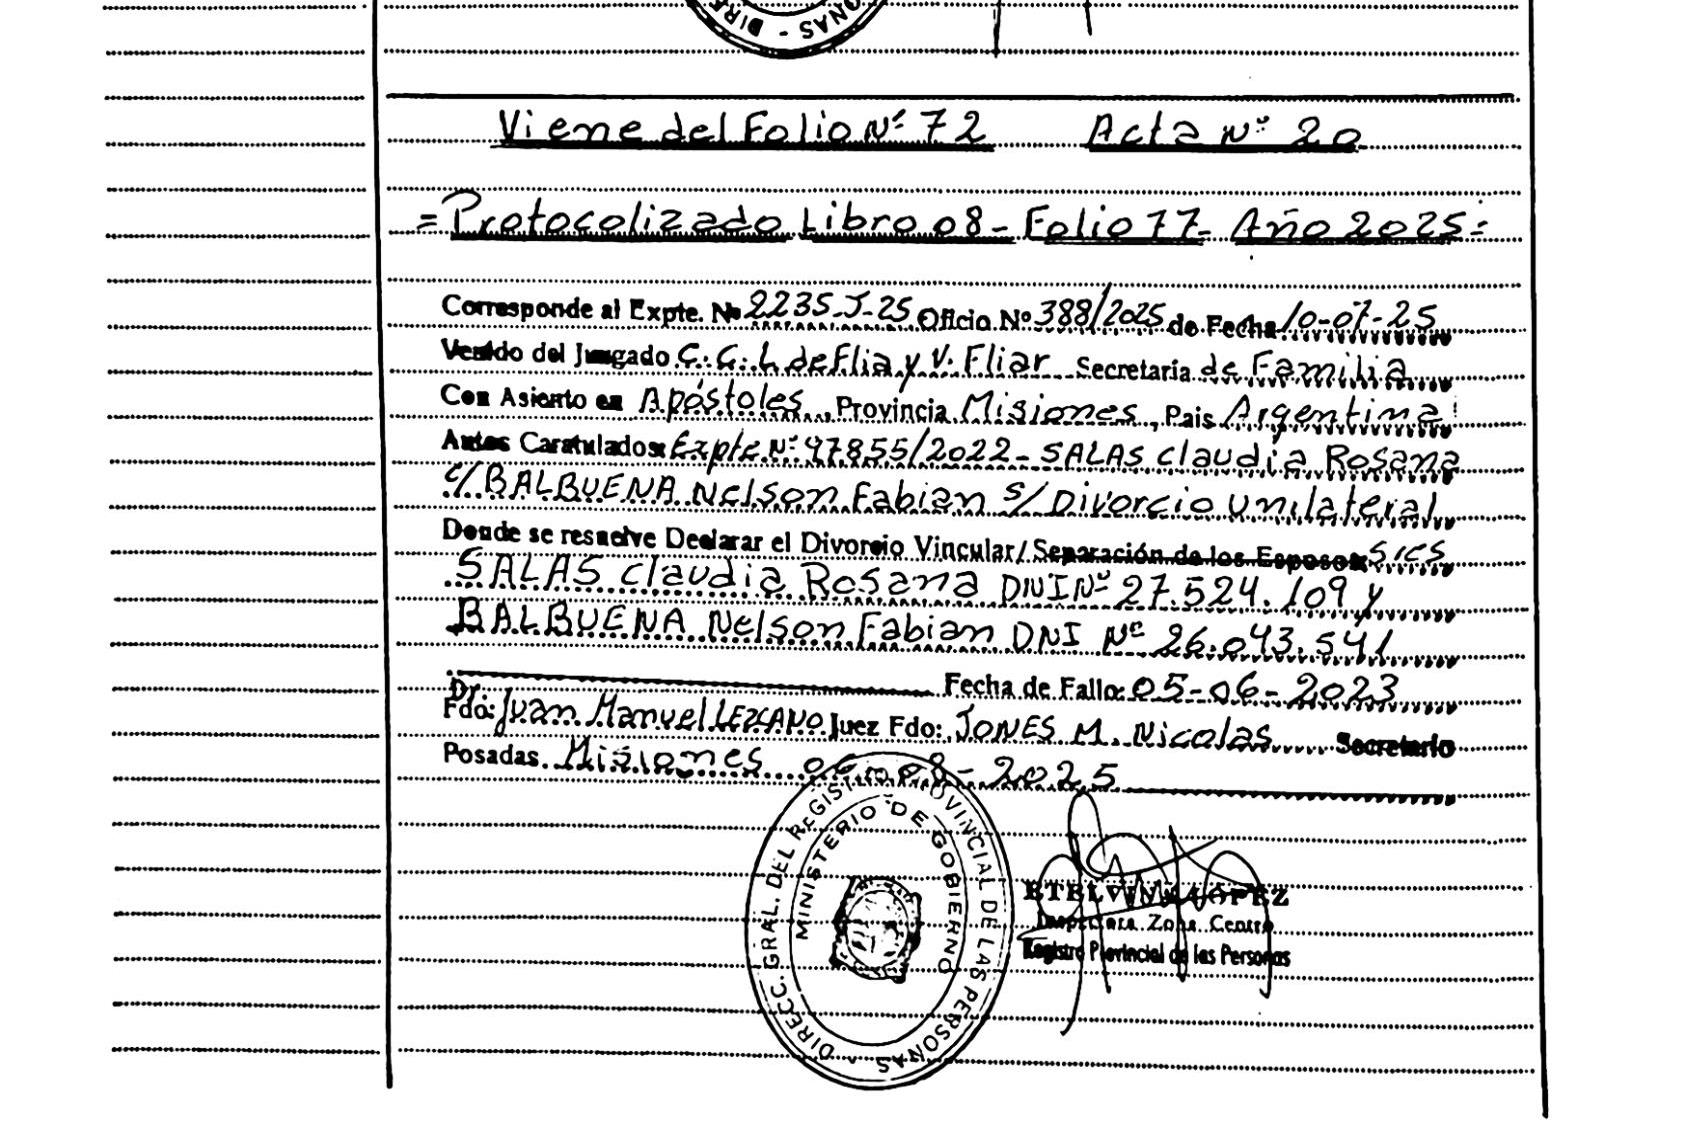 DIRE
ONAS -
Viene del Folio Nº 72 Acta Nº 20
= Protocolizado Libro 08 - Folio 77 - Año 2025 =
Corresponde al Expte. Nº 2235-J-25 Oficio Nº 388/2025 de Fecha 10-07-25
Venido del Juzgado C. C. L de Flia y V. Fliar Secretaria de Familia
Con Asiento en Apóstoles, Provincia Misiones, Pais Argentina
Autos Caratulados: Expte Nº 47855/2022 - SALAS Claudia Rosana
c/ BALBUENA Nelson Fabian s/ Divorcio Unilateral
Donde se resuelve Declarar el Divorcio Vincular/ Separación de los Esposos: Sres
SALAS Claudia Rosana DNI Nº 27.524.109 y
BALBUENA Nelson Fabian DNI Nº 26.043.541
Fecha de Fallo: 05-06-2023
Fdo: Dr. Juan Manuel LEZCANO Juez Fdo: JONES M. Nicolas Secretario
Posadas Misiones 06-08-2025
DIRECC. GRAL. DEL REGISTRO PROVINCIAL DE LAS PERSONAS -
MINISTERIO DE GOBIERNO
ETELVINA LOPEZ
Inspectora Zona Centro
Registro Provincial de las Personas